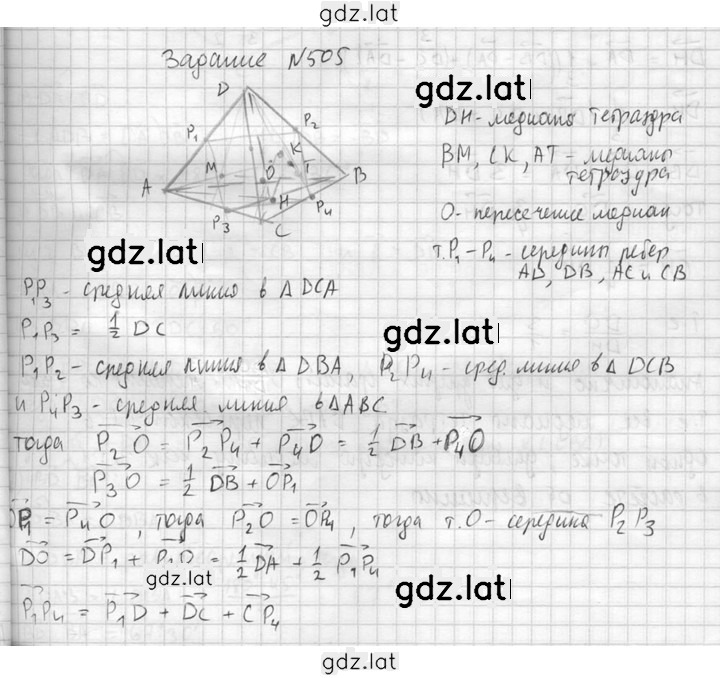 gdz.lat
Задание N505
gdz.lat
D
P₁
P₂
M
K
T
O
A
B
H
P₃
P₄
C
DH - медиана тетраэдра
BM, CK, AT - медианы
тетраэдра
O - пересечение медиан
т. P₁ - P₄ - середины ребер
AD, DB, AC и CB
gdz.lat
P₁P₃ - средняя линия в Δ DCA
P₁P₃ = 1/2 DC
gdz.lat
P₁P₂ - средняя линия в Δ DBA, P₂P₄ - сред. линия в Δ DCB
и P₄P₃ - средняя линия в Δ ABC
тогда P₂O = P₂P₄ + P₄O = 1/2 DB + P₄O
P₃O = 1/2 DB + OP₁
= P₄O, тогда P₂O = OP₄, тогда т. O - середина P₂P₃
DO = DP₁ + P₁O = 1/2 DA + 1/2 P₁P₄
gdz.lat
gdz.lat
P₁P₄ = P₁D + DC + CP₄
gdz.lat